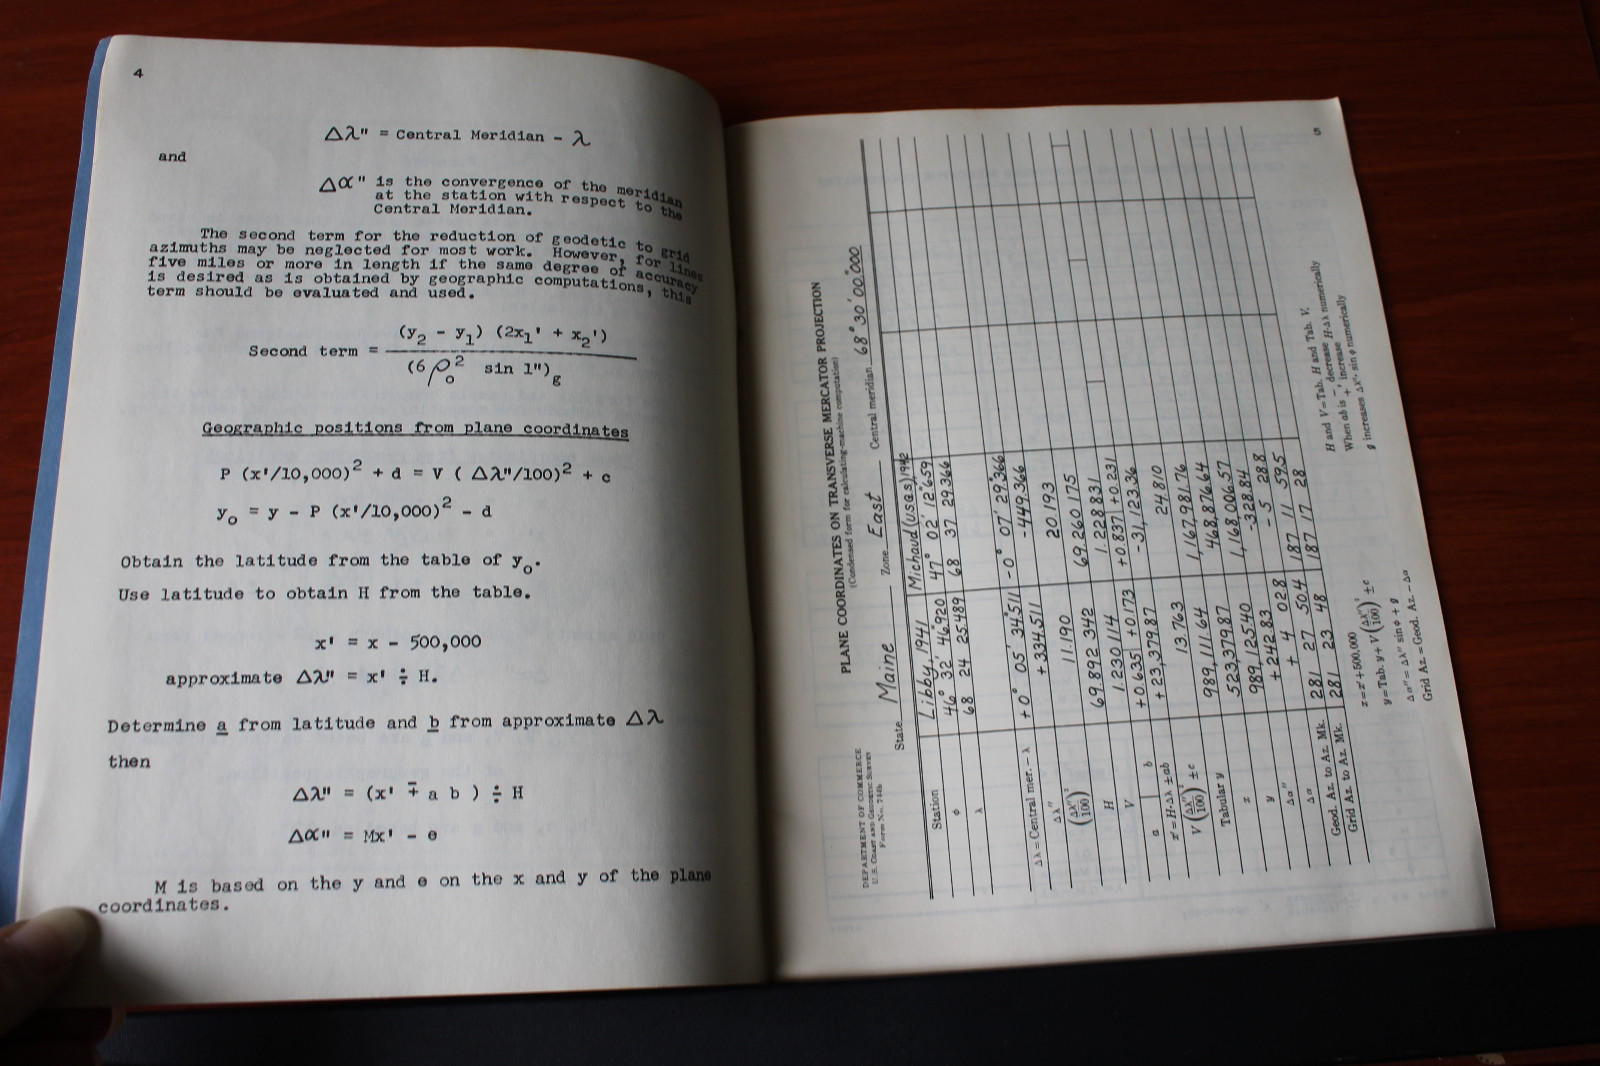 4
Δλ" = Central Meridian - λ
and
Δα" is the convergence of the meridian
at the station with respect to the
Central Meridian.
The second term for the reduction of geodetic to grid
azimuths may be neglected for most work. However, for lines
five miles or more in length if the same degree of accuracy
is desired as is obtained by geographic computations, this
term should be evaluated and used.
Second term = (y₂ - y₁) (2x₁' + x₂') / (6 ρ₀² sin 1")g
Geographic positions from plane coordinates
P (x'/10,000)² + d = V ( Δλ"/100)² + c
y₀ = y - P (x'/10,000)² - d
Obtain the latitude from the table of y₀.
Use latitude to obtain H from the table.
x' = x - 500,000
approximate Δλ" = x' ÷ H.
Determine a from latitude and b from approximate Δλ
then
Δλ" = (x' ∓ a b ) ÷ H
Δα" = Mx' - e
M is based on the y and e on the x and y of the plane
coordinates.
5
DEPARTMENT OF COMMERCE
U.S. COAST AND GEODETIC SURVEY
Form No. 744b
PLANE COORDINATES ON TRANSVERSE MERCATOR PROJECTION
(Condensed form for calculating-machine computation)
State Maine Zone East Central meridian 68° 30' 00.000"
Station Libby, 1941 Michaud (USGS) 1942
φ 46° 32' 46.920" 47° 02' 12.659"
λ 68 24 25.489 68 37 29.366
Δλ = Central mer. - λ +0° 05' 34.511" -0° 07' 29.366"
Δλ" +334.511 -449.366
(Δλ"/100)² 11.190 20.193
H 69.892 342 69.260 175
V 1.230114 1.228831
a b +0.635 +0.173 +0.837 +0.231
x' = H·Δλ ± ab +23,379.87 -31,123.36
V (Δλ"/100)² ± c 13.763 24.810
Tabular y 989,111.64 1,167,981.76
x 523,379.87 468,876.64
y 989,125.40 1,168,006.57
Δα" +242.83 -328.84
Δα + 4 02.8 - 5 28.8
Geod. Az. to Az. Mk. 281 27 50.4 187 11 59.5
Grid Az. to Az. Mk. 281 23 48 187 17 28
x = x' + 500,000
y = Tab. y + V (Δλ"/100)² ± c
Δα" = Δλ" sin φ + g
Grid Az. = Geod. Az. - Δα
H and V = Tab. H and Tab. V.
When ab is - decrease H·Δλ numerically
+ increase
g increases Δλ"· sin φ numerically